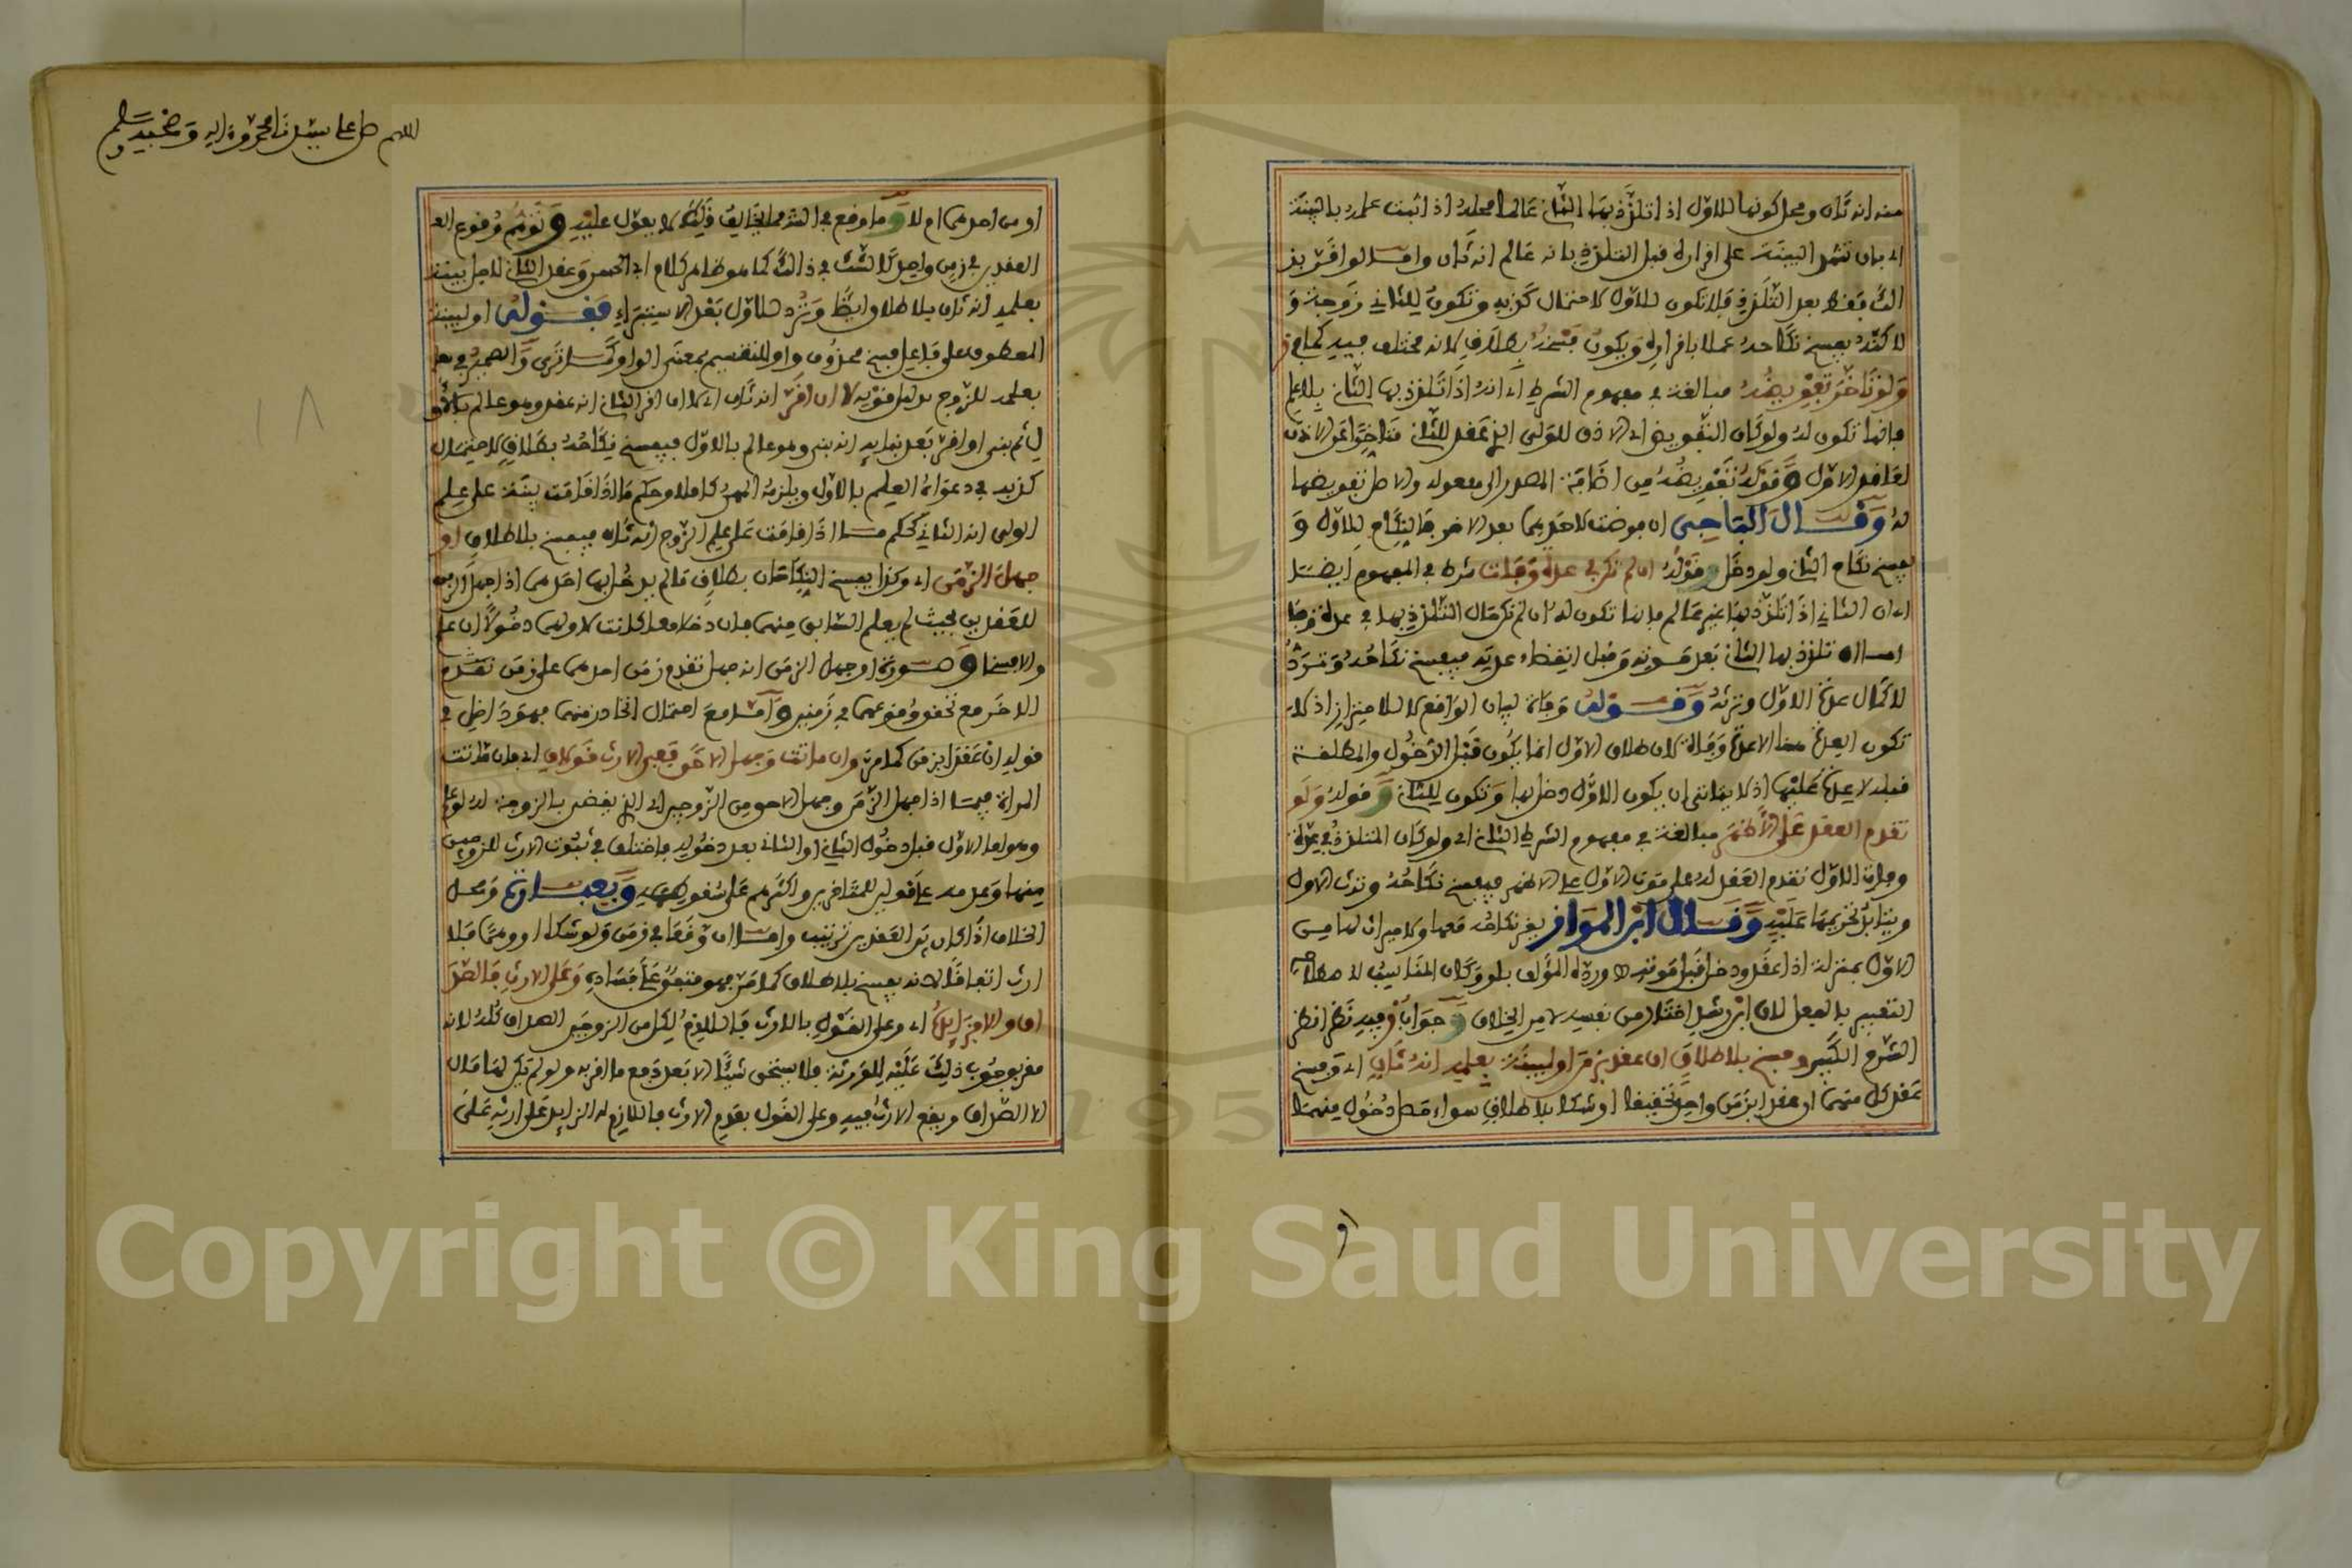 منه انه ثان ومحل كونها للاول اذا تلذذ بها الثاني عالما محله اذا ثبت علمه بالبينة
اي بان تشهد البينة على اقراره قبل التلذذ بانه عالم انه ثان واما لو اقر بذلك
الثاني فقط بعد التلذذ فلا تكون للاول لاحتمال كذبه وتكون للثاني زوجة و
لاكنه يفسخ نكاحه عملا باقراره ويكون فسخه بطلاق لانه مختلف فيه كما في
ولو تاخر تفويضه مبالغة في مفهوم الشرط اي انه اذا تلذذ بها الثاني بلا علم
فانها تكون له ولو كان التفويض اي الاذن للولي الذي عقد للثاني متاخرا عن الاذن
لعاقد الاول وقوله تفويضه من اضافة المصدر الى مفعوله والاصل تفويضها
له وقال الباجي ان فوضت لاحدهما بعد الاخر فالنكاح للاول و
يفسخ نكاح الثاني ولو دخل وقوله ان لم تكن في عدة وفات شرط في المفهوم ايضا
اي ان الثاني اذا تلذذ بها غير عالم فانها تكون له ان لم تكن حال التلذذ بها في عدة فرضا
اما ان تلذذ بها الثاني بعد موته وقبل انقضاء عدته فيفسخ نكاحه وترد
لاكمال عدة الاول وترثه وقوله وفاة لبيان الواقع لا للاحتراز اذ لا
تكون العدة هنا الا عدة وفاة لان طلاق الاول انما يكون قبل الدخول والمطلقة
قبله لا عدة عليها اذ لا يتاتى ان يكون الاول دخل بها وتكون للثاني وقوله ولو
تقدم العقد على الاظهر مبالغة في مفهوم الشرط الثاني اي ولو كان المتلذذ في عدة
وفات الاول تقدم العقد له على موت الاول على الاظهر فيفسخ نكاحه وترث الاول
ويتابد تحريمها عليه وقال ابن المواز يقر نكاحه معها ولا ميراث لها من
الاول بمنزلة اذا عقد ودخل قبل موته ورده المؤلف بلو وكان المناسب لاصطلاحه
التعبير بالفعل لان ابن رشد اختاره من نفسه لا من الخلاف وجوابه وفيه نظر انظر
الشرح الكبير وفسخ بلا طلاق ان عقدا بزمن او لبينة بعلمه انه ثان اي وفسخ
عقد كل منهما ان عقدا بزمن واحد تحقيقا او شكا بلا طلاق سواء حصل دخول منهما
او
اللهم صل على سيدنا محمد وءاله وصحبه وسلم
او من احدهما ام لا وما وقع في الشرح مما يخالف ذلك لا يعول عليه وتوهم وقوع الع
العقدين في زمن واحد كالشك في ذلك كما هو ظاهر كلام ابي الحسن وعقد الثاني لاجل بينة
بعلمه انه ثان بلا طلاق ايضا وترد للاول بعد الاستبراء فقوله او لبينة
المعطوف على فاعل فسخ محذوف واو للتقسيم بمعنى الواو كما ترى والضمير في
بعلمه للزوج بدليل قوله لا ان اقر انه ثان اي لا ان اقر الثاني انه عقد وهو عالم بالاول
ثم بنى او اقر بعد بنائه انه بنى وهو عالم بالاول فيفسخ نكاحه بطلاق لاحتمال
كذبه في دعواه العلم بالاول ويلزمه المهر كاملا وحكم ما اذا قامت بينة على علم
الولي انه الثاني كحكم ما اذا قامت على علم الزوج انه ثان فيفسخ بلا طلاق او
جهل الزمن اي وكذا يفسخ النكاحان بطلاق ما لم يدخل بها احدهما اذا جهل الزمن
للعقدين بحيث لم يعلم السابق منهما فان دخلا معا كانت لاولهما دخولا ان علم
والا فسخا وصورة او جهل الزمن انه جهل تقدم زمن احدهما على زمن تقدم
الاخر مع تحقق وقوعهما في زمنين واما مع احتمال اتحاد زمنهما فهو داخل في
قوله ان عقدا بزمن كما مر وان ماتت وجهل الاحق ففي الارث قولان اي فان ماتت
المراة فيما اذا جهل الزمن وجهل الاحق من الزوجين اي الذي يقضى بالزوجة له لو علم
وهو اما الاول قبل دخول الثاني او الثاني بعد دخوله فاختلف في ثبوت الارث للزوجين
منهما وعدمه على قولين للمتاخرين واكثرهم على ثبوته وبعبارة ومحل
الخلاف اذا كان بين العقدين ترتيب واما ان وقعا في زمن ولو شكا او وهما فلا
ارث اتفاقا لانه يفسخ بلا طلاق كما مر فهو متفق على فساده وعلى الارث فالصد
اق والا فزائده اي وعلى القول بالارث فاللازم لكل من الزوجين الصداق كله لانه
مقر بوجوب ذلك عليه للورثة فلا يستحق شيئا الا بعد دفع ما اقر به ولو لم تكن لها مال
الا الصداق ويقع الارث فيه وعلى القول بعدم الارث فاللازم له الزائد على ارثه على